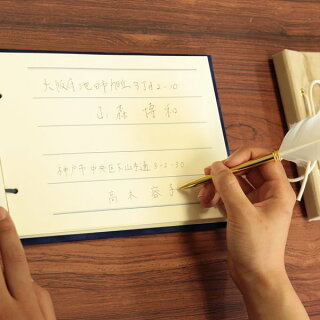 大阪府池田市旭丘3丁目2-10
小森 博和
神戸市中央区下山手通3-2-30
高木 容子